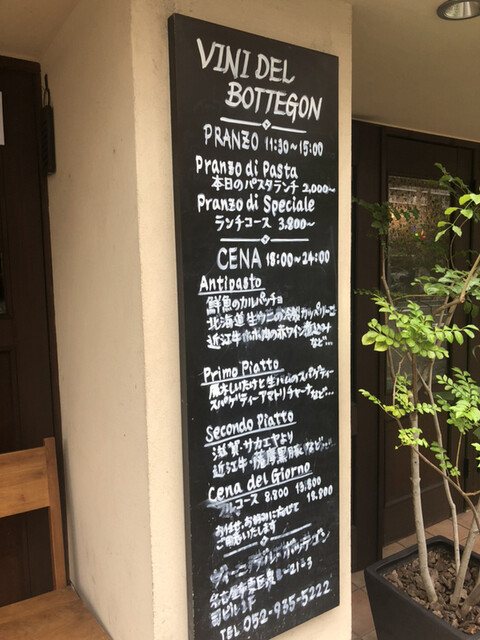 VINI DEL
BOTTEGON
PRANZO 11:30~15:00
Pranzo di Pasta
本日のパスタランチ 2,000~
Pranzo di Speciale
ランチコース 3.800~
CENA 18:00~24:00
Antipasto
鮮魚のカルパッチョ
北海道生ウニの冷製カッペリーニ
近江牛ホホ肉の赤ワイン煮込み
など…
Primo Piatto
原木しいたけと生ハムのスパゲティー
スパゲティーアマトリチャーナ など…
Secondo Piatto
滋賀・サカエヤより
近江牛・薩摩黒豚 など…
Cena del Giorno
コース 8.800 13,800
18.800
お任せ、お好みに合わせて
ご用意いたします
ヴィーニ デル ボッテゴン
名古屋市東区泉
ビル1F
TEL 052-935-5222